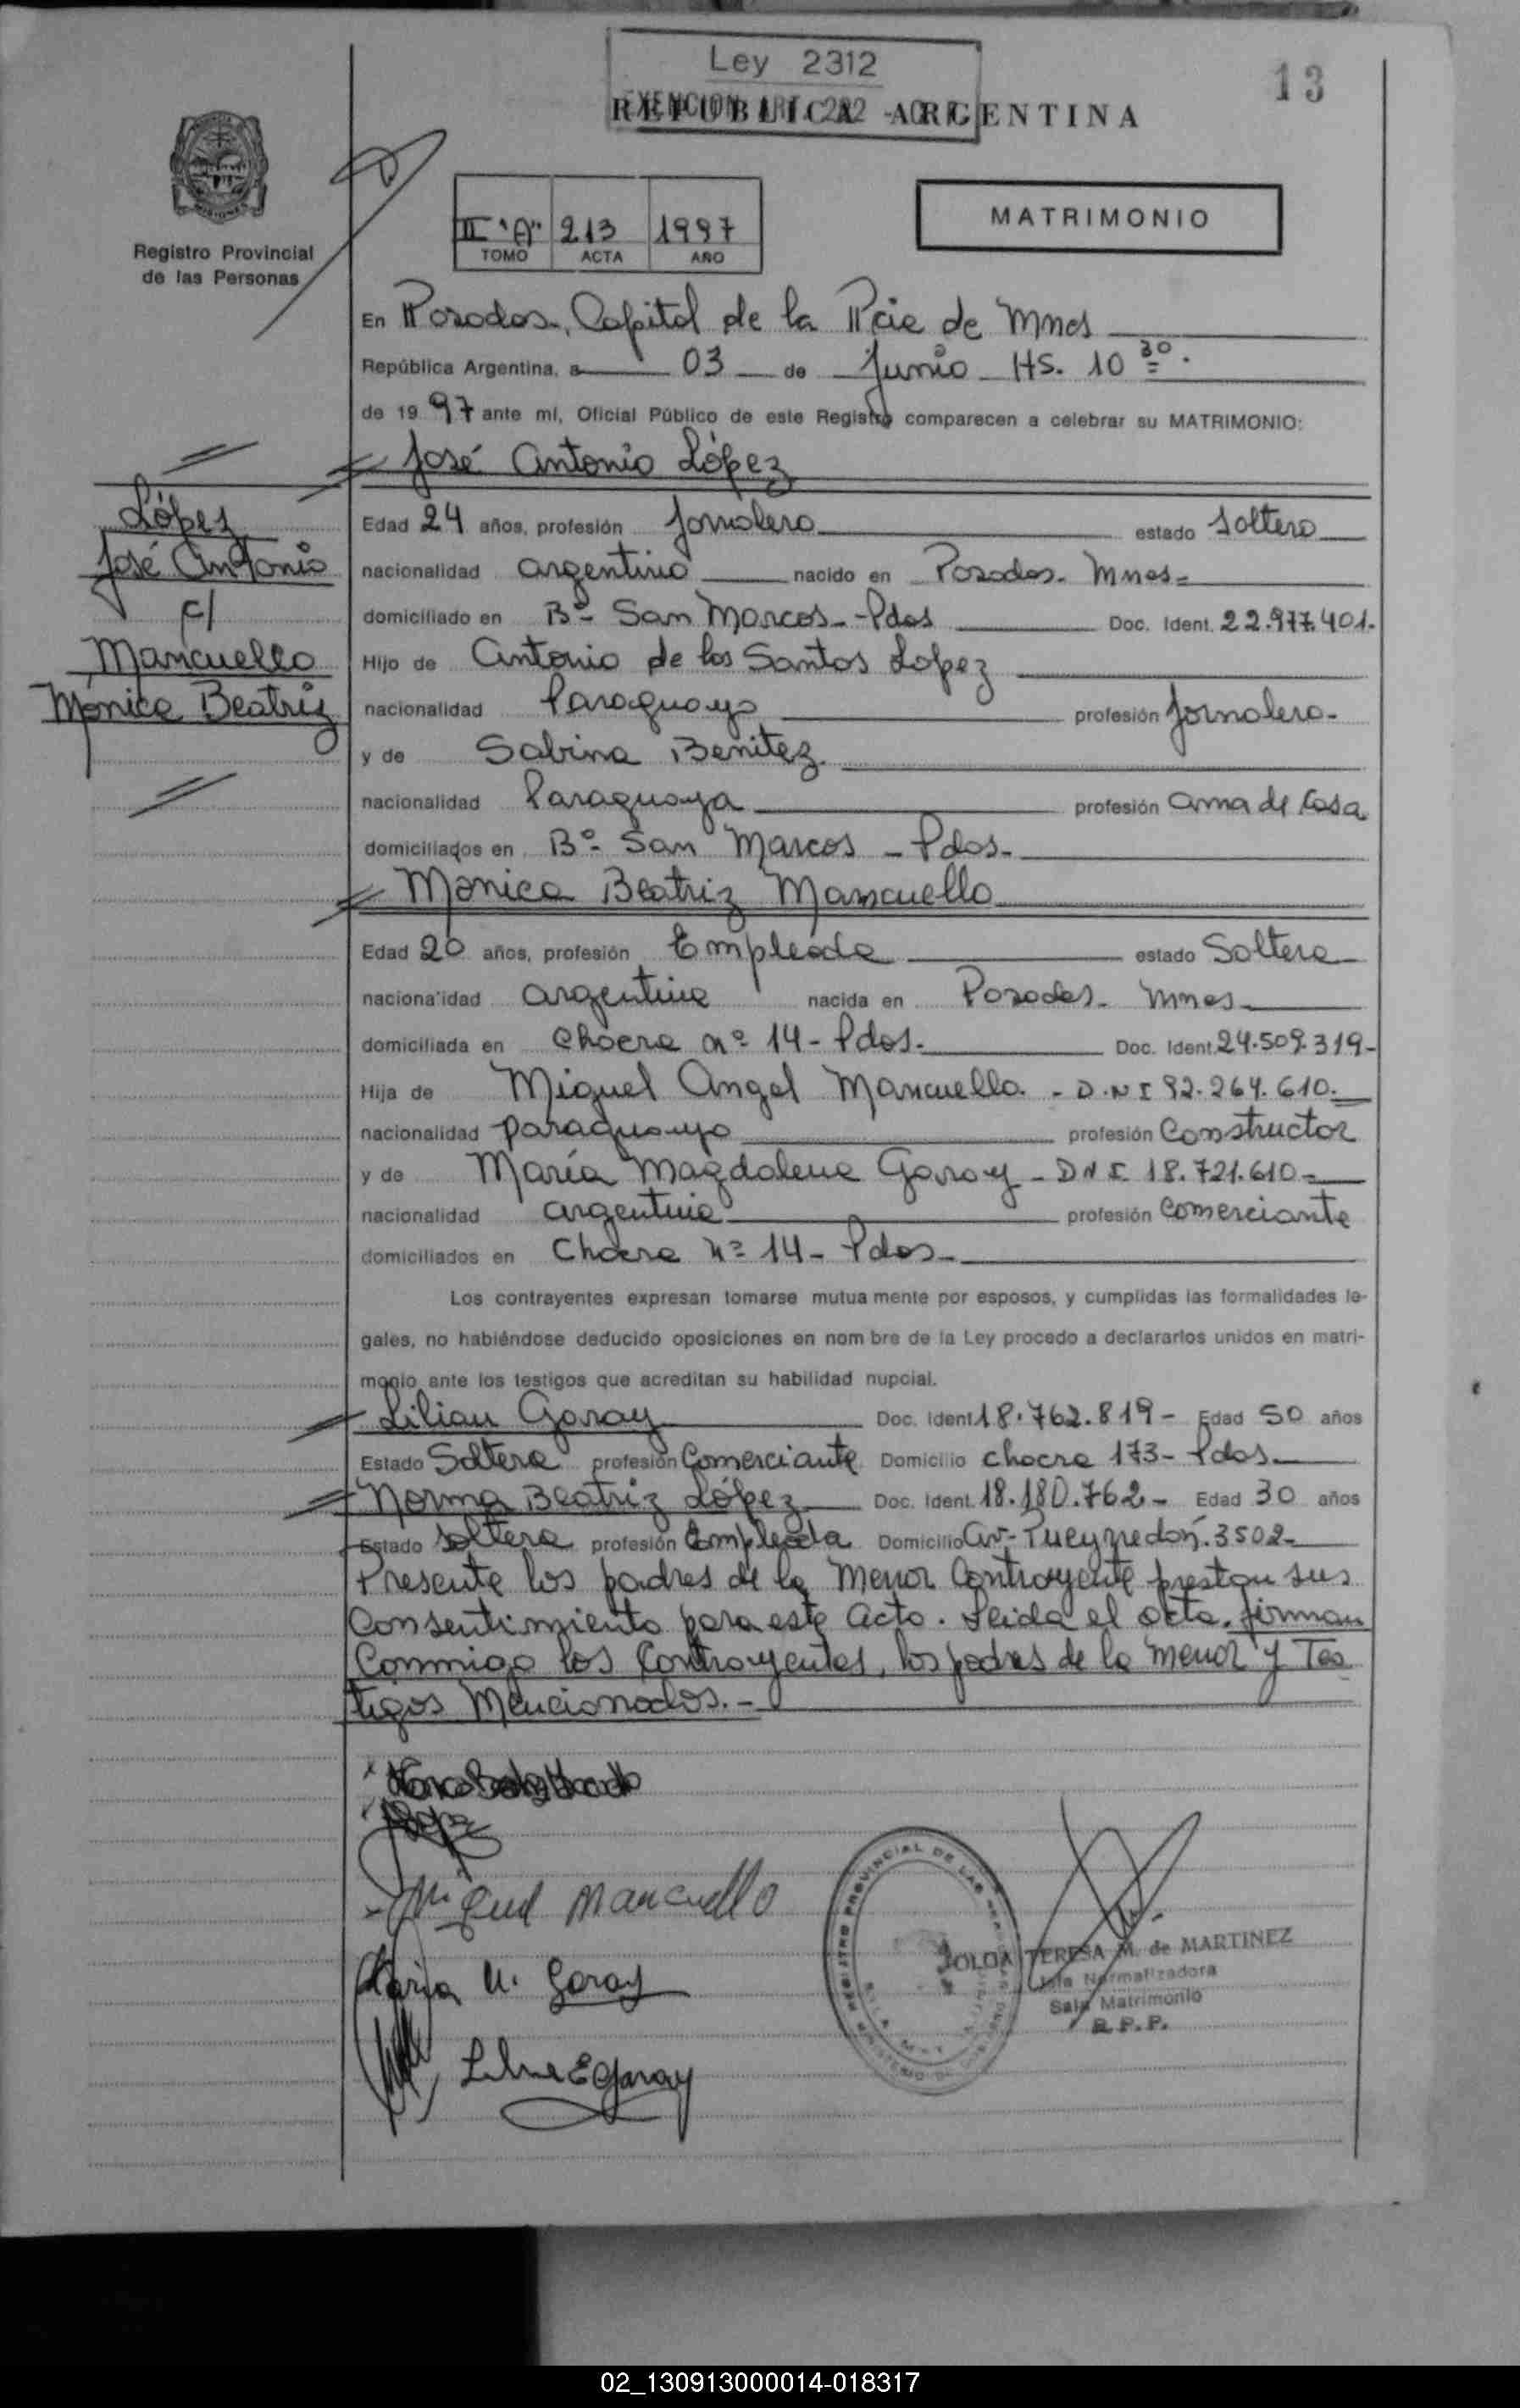 Ley 2312
EXENCION ART. 282
13
REPUBLICA ARGENTINA
MISIONES
Registro Provincial
de las Personas
II "A" 213 1997
TOMO ACTA AÑO
MATRIMONIO
En Posadas, Capital de la Pcia de Mnes
República Argentina, a 03 de Junio Hs. 10 30.
de 1997 ante mí, Oficial Público de este Registro comparecen a celebrar su MATRIMONIO:
José Antonio López
López
José Antonio
c/
Mancuello
Mónica Beatriz
Edad 24 años, profesión Jornalero estado Soltero
nacionalidad argentino nacido en Posadas - Mnes -
domiciliado en B° San Marcos - Pdas Doc. Ident. 22.977.401.
Hijo de Antonio de los Santos Lopez
nacionalidad Paraguayo profesión Jornalero -
y de Sabina Benitez
nacionalidad Paraguaya profesión ama de Casa
domiciliados en B° San Marcos - Pdas -
Monica Beatriz Mancuello
Edad 20 años, profesión Empleada estado Soltera
nacionalidad argentina nacida en Posadas - Mnes -
domiciliada en Chacra n° 14 - Pdas. Doc. Ident. 24.509.319 -
Hija de Miguel Angel Mancuello. - D.N I 92.264.610.
nacionalidad paraguayo profesión Constructor
y de María Magdalena Garay - DNI. 18.721.610 -
nacionalidad argentina profesión Comerciante
domiciliados en Chacra n° 14 - Pdas -
Los contrayentes expresan tomarse mutua mente por esposos, y cumplidas las formalidades le-
gales, no habiéndose deducido oposiciones en nom bre de la Ley procedo a declararlos unidos en matri-
monio ante los testigos que acreditan su habilidad nupcial.
Lilian Garay Doc. Ident 18.762.819 - Edad 50 años
Estado Soltera profesión Comerciante Domicilio chacra 173 - Pdas -
Norma Beatriz López Doc. Ident. 18.180.762 - Edad 30 años
Estado Soltera profesión Empleada Domicilio av - Pueyrredón. 3502 -
Presente los padres de la menor Contrayente prestan sus
Consentimiento para este acto. Leida el acta, firman
Conmigo los Contrayentes, los padres de la menor y Tes
tigos Mencionados. -
Miguel Mancuello
Maria M. Garay
REGISTRO PROVINCIAL DE LAS
TERESA M. de MARTINEZ
Jefa Normalizadora
Sala Matrimonio
R. P. P.
02_130913000014-018317